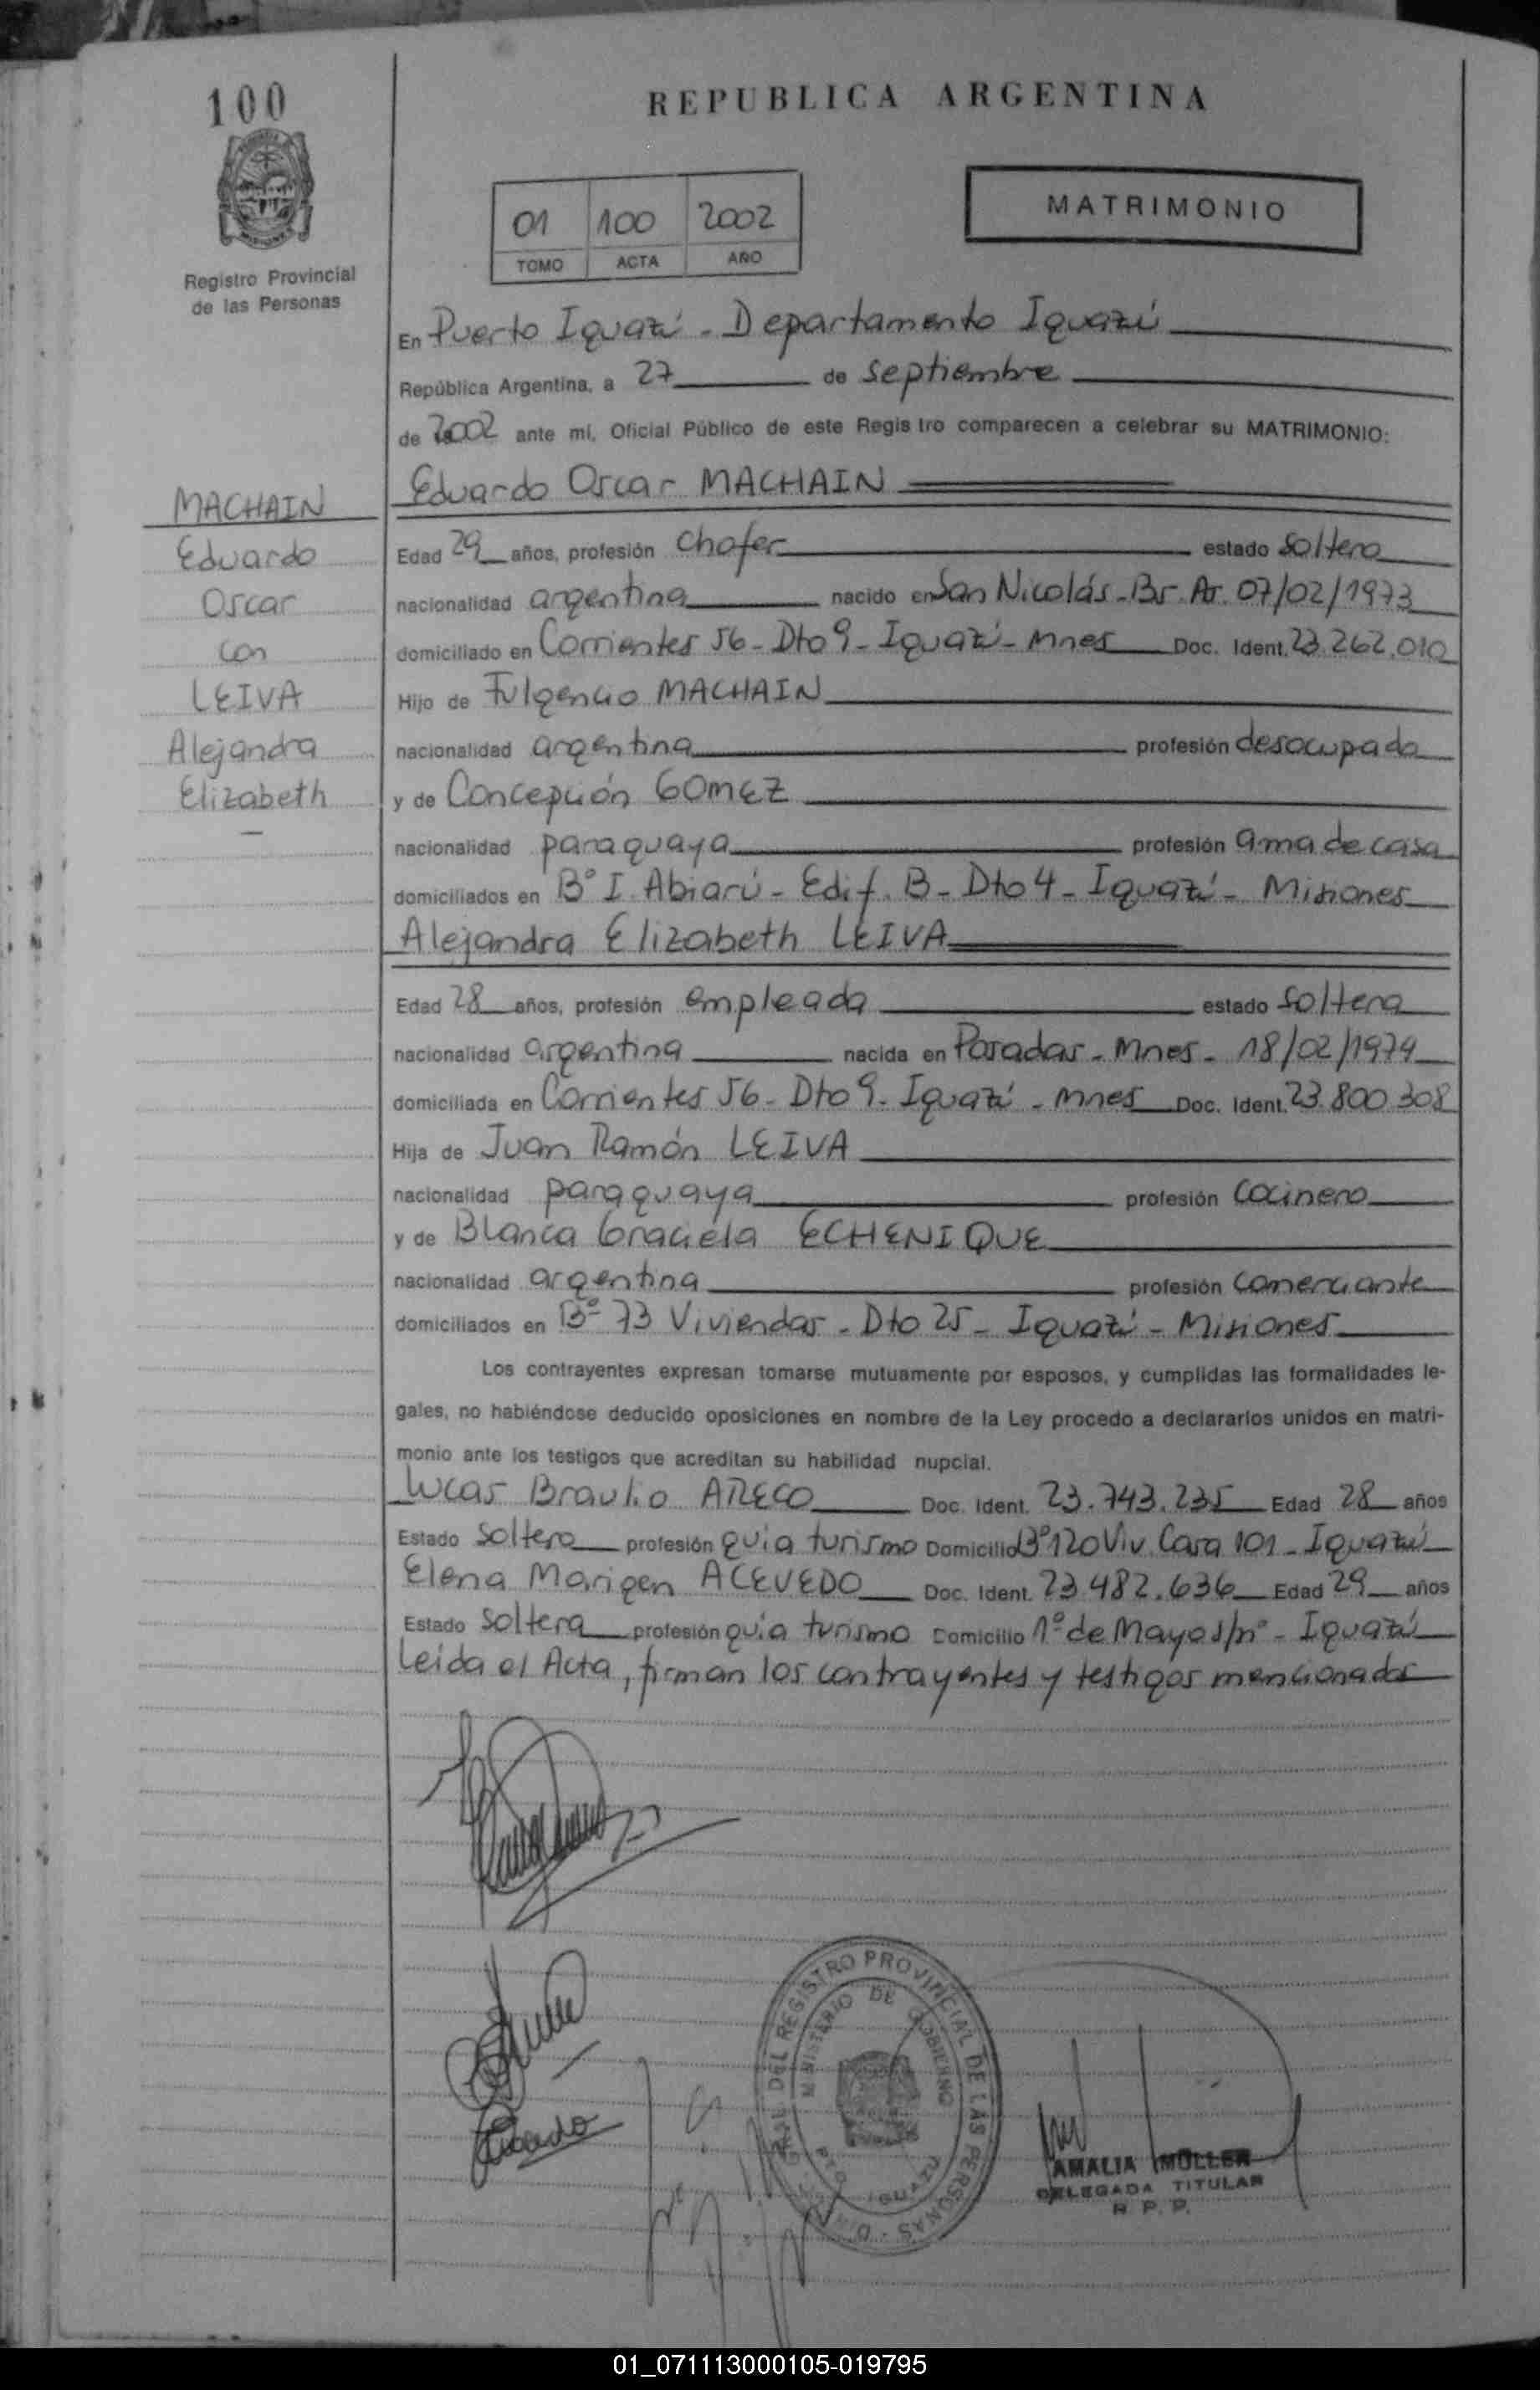 100
REPUBLICA ARGENTINA
01 100 2002
TOMO ACTA AÑO
MATRIMONIO
Registro Provincial
de las Personas
En Puerto Iguazú - Departamento Iguazú
República Argentina, a 27 de septiembre
de 2002 ante mí, Oficial Público de este Registro comparecen a celebrar su MATRIMONIO:
MACHAIN
Eduardo
Oscar
con
LEIVA
Alejandra
Elizabeth
Eduardo Oscar MACHAIN
Edad 29 años, profesión chofer estado soltero
nacionalidad argentina nacido en San Nicolás - Bs. As. 07/02/1973
domiciliado en Corrientes 56 - Dto 9 - Iguazú - Mnes Doc. Ident. 23.262.010
Hijo de Fulgencio MACHAIN
nacionalidad argentina profesión desocupado
y de Concepción GOMEZ
nacionalidad paraguaya profesión ama de casa
domiciliados en Bº I. Abiarú - Edif. B - Dto 4 - Iguazú - Misiones
Alejandra Elizabeth LEIVA
Edad 28 años, profesión empleada estado soltera
nacionalidad argentina nacida en Posadas - Mnes - 18/02/1974
domiciliada en Corrientes 56 - Dto 9 - Iguazú - Mnes Doc. Ident. 23.800.308
Hija de Juan Ramón LEIVA
nacionalidad paraguaya profesión cocinero
y de Blanca Graciela ECHENIQUE
nacionalidad argentina profesión comerciante
domiciliados en Bº 73 Viviendas - Dto 25 - Iguazú - Misiones
Los contrayentes expresan tomarse mutuamente por esposos, y cumplidas las formalidades le-
gales, no habiéndose deducido oposiciones en nombre de la Ley procedo a declararlos unidos en matri-
monio ante los testigos que acreditan su habilidad nupcial.
Lucas Braulio ARECO Doc. Ident. 23.743.235 Edad 28 años
Estado soltero profesión guía turismo Domicilio Bº 120 Viv. Casa 101 - Iguazú
Elena Marigen ACEVEDO Doc. Ident. 23.482.636 Edad 29 años
Estado soltera profesión guía turismo Domicilio 1º de Mayo s/nº - Iguazú
Leída el Acta, firman los contrayentes y testigos mencionados
DEL REGISTRO PROVINCIAL DE LAS PERSONAS
MINISTERIO DE GOBIERNO
AMALIA MÜLLER
DELEGADA TITULAR
R. P. P.
01_071113000105-019795